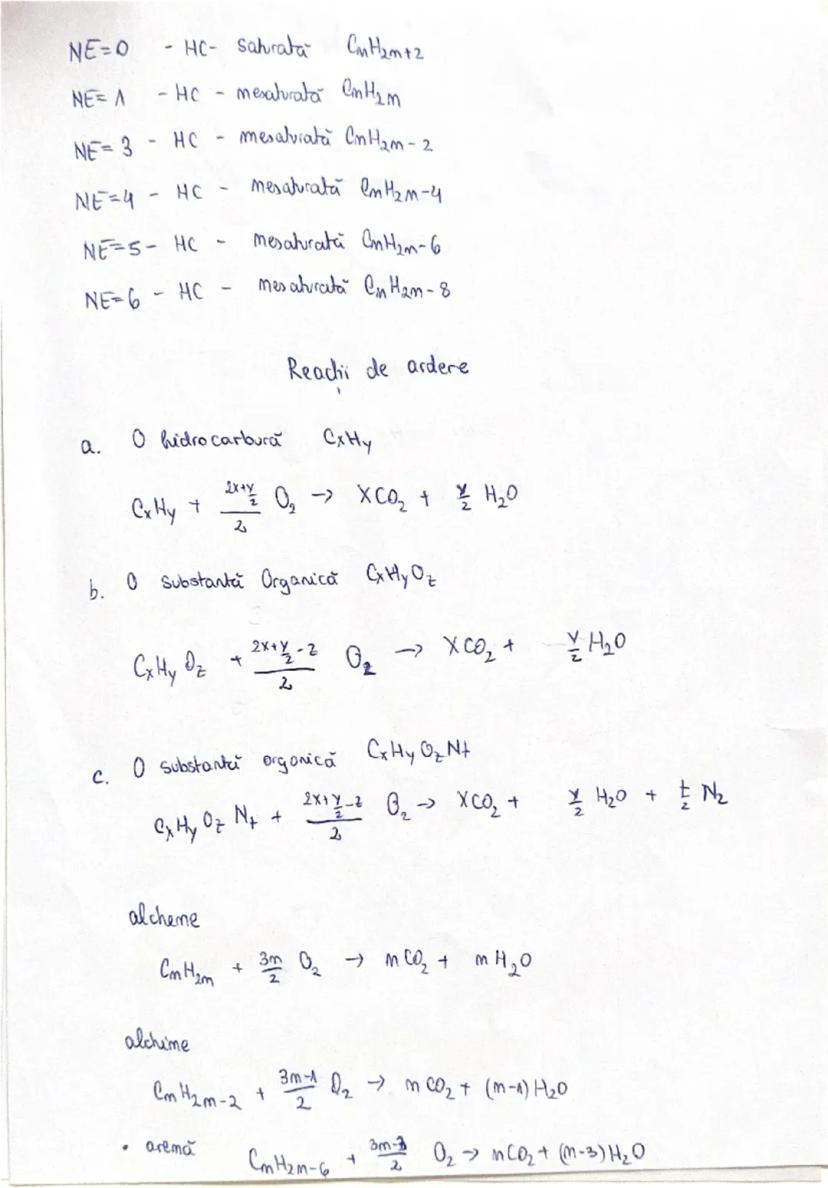 NE=0 - HC- saturată CnH2n+2
NE= 1 - HC - nesaturată CnH2n
NE= 3 - HC - nesaturată CnH2n-2
NE=4 - HC - nesaturată CnH2n-4
NE=5- HC - nesaturată CnH2n-6
NE=6 - HC - nesaturată CnH2n-8
Reacții de ardere
a. O hidrocarbură CxHy
CxHy + (2x+y/2)/2 O2 → XCO2 + y/2 H2O
b. O substantă Organică CxHyOz
CxHyOz + (2x+y/2-z)/2 O2 → XCO2 + y/2 H2O
c. O substantă organică CxHyOzNt
CxHyOzNt + (2x+y/2-z)/2 O2 → XCO2 + y/2 H2O + t/2 N2
alchene
CnH2n + 3n/2 O2 → nCO2 + nH2O
alchine
CnH2n-2 + (3n-1)/2 O2 → nCO2 + (n-1)H2O
• arenă CnH2n-6 + (3n-3)/2 O2 → nCO2 + (n-3)H2O